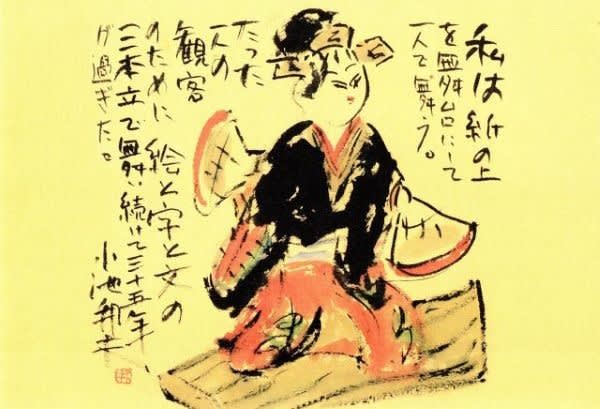 私は紙の上
を舞台にして
一人で舞う。
たった
一人の
観客
のために 絵と字と文の
三本立で舞い続けて三十五年
が過ぎた。
小池